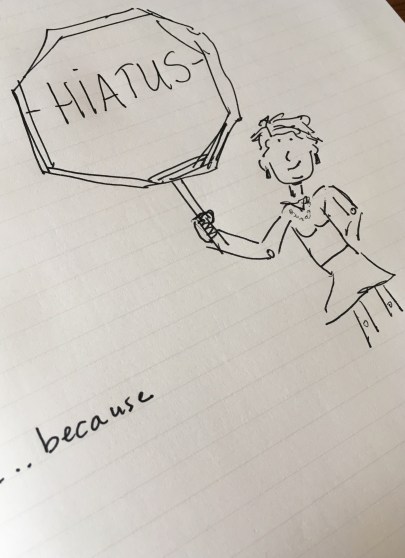 -HiATUS-
...because